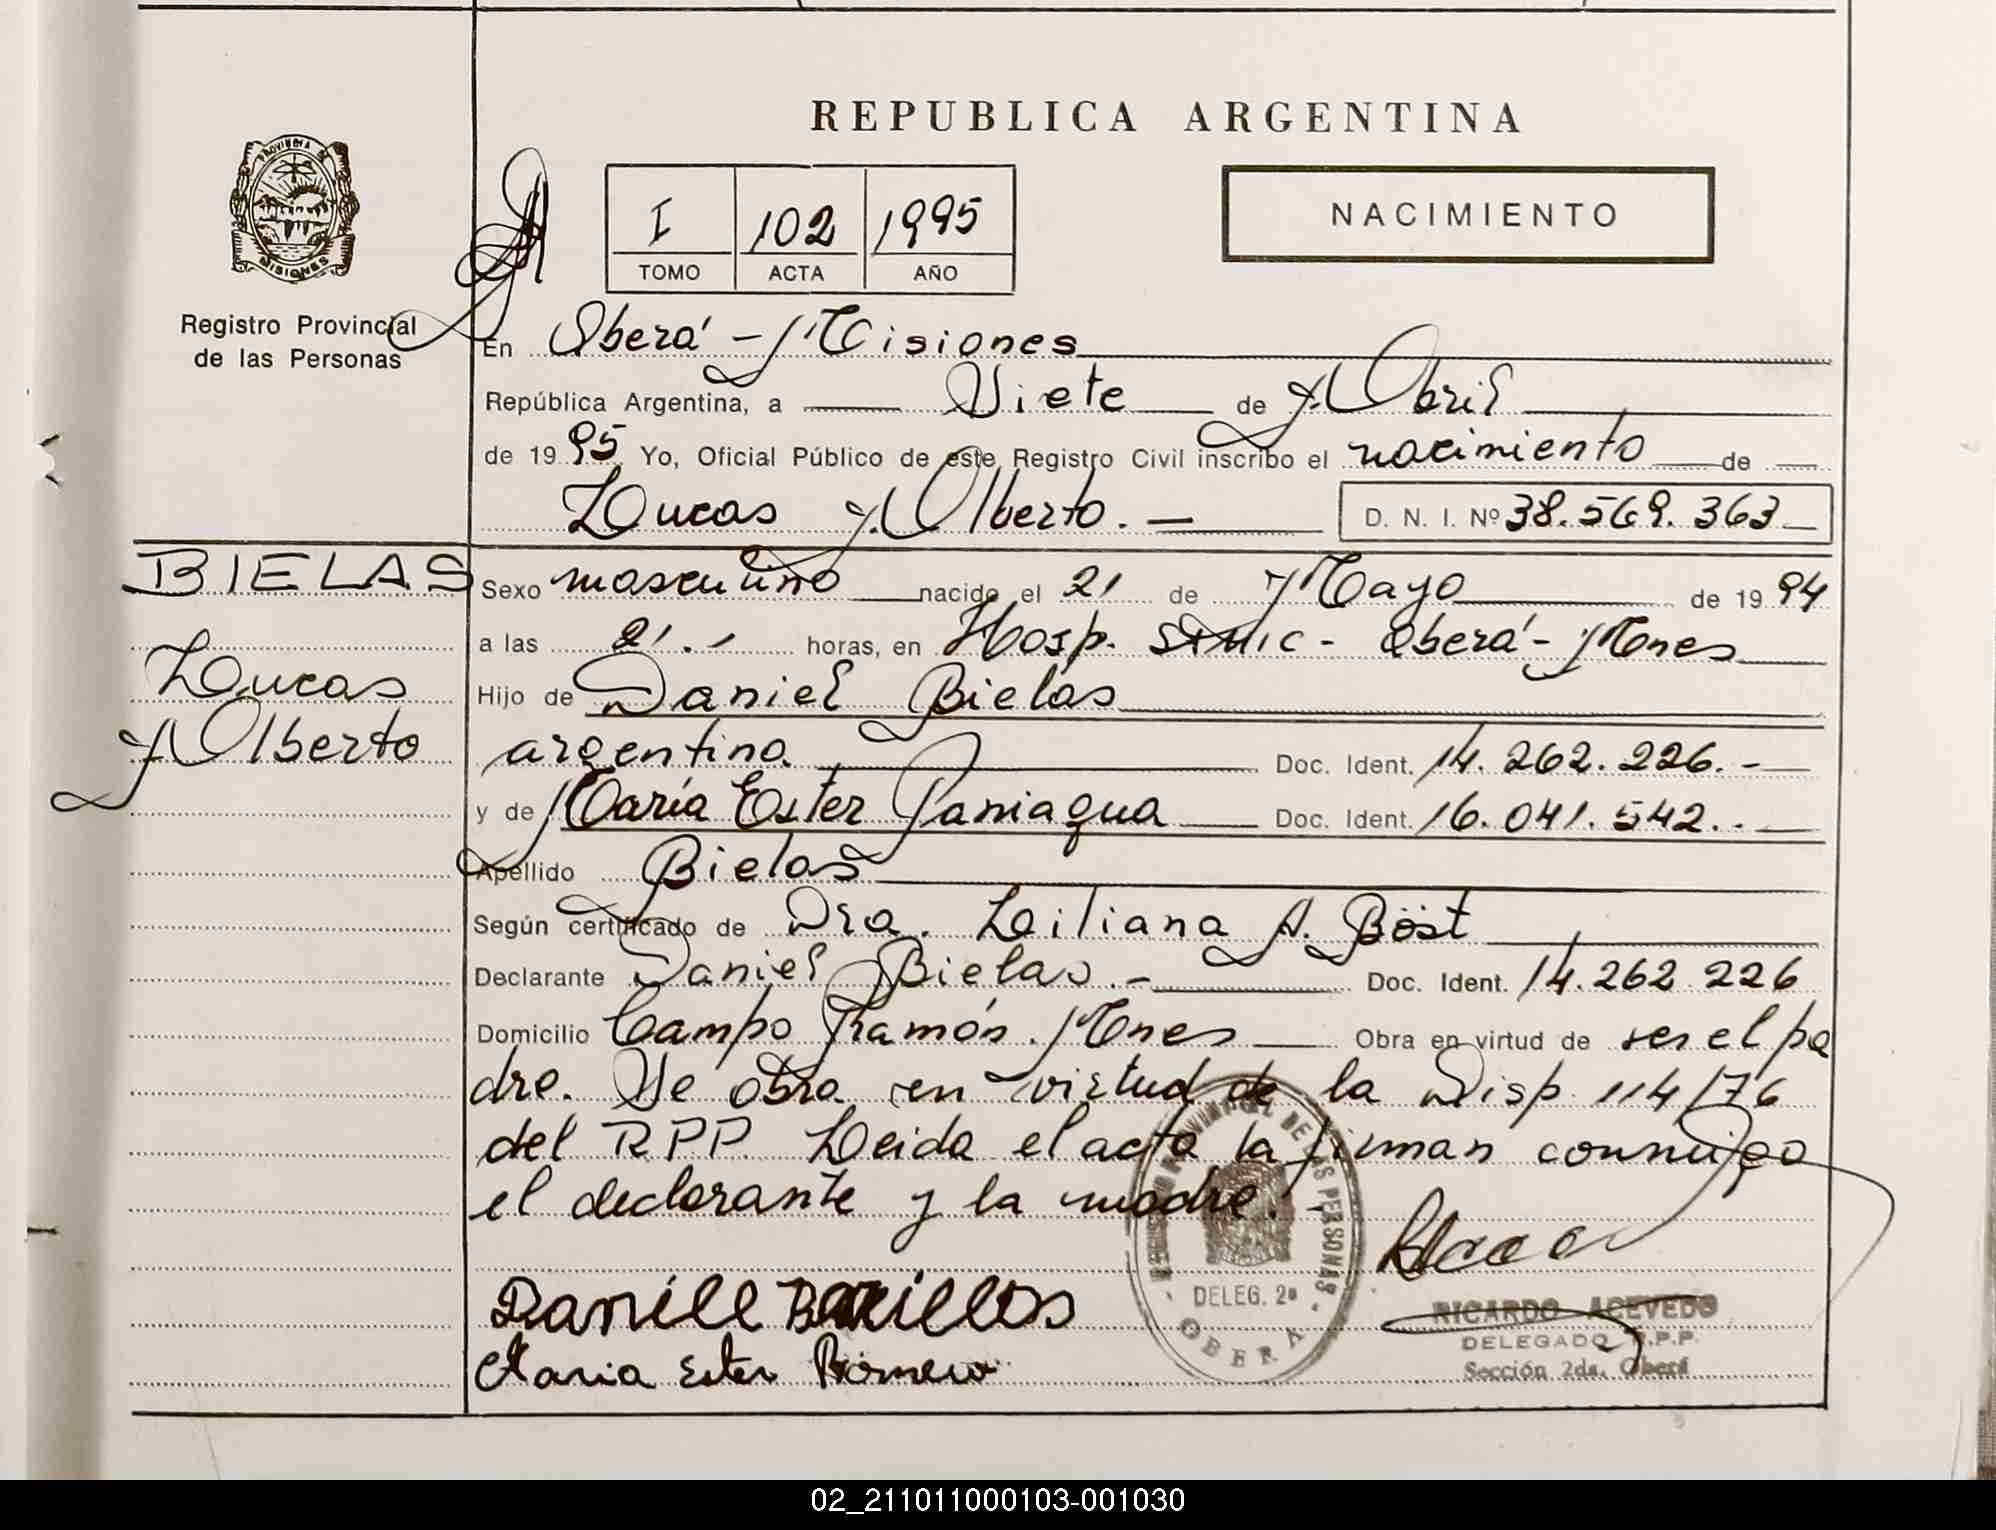 REPUBLICA ARGENTINA
PROVINCIA DE
MISIONES
Registro Provincial
de las Personas
I 102 1995
TOMO ACTA AÑO
NACIMIENTO
En Oberá - Misiones
República Argentina, a Siete de Abril
de 1995 Yo, Oficial Público de este Registro Civil inscribo el nacimiento de
Lucas Alberto. D. N. I. Nº 38.569.363
BIELAS
Lucas
Alberto
Sexo masculino nacido el 21 de Mayo de 1994
a las 2 horas, en Hosp. SAMIC - Oberá - Mnes
Hijo de Daniel Bielas
argentino. Doc. Ident. 14.262.226.-
y de María Ester Paniagua Doc. Ident. 16.041.542.-
Apellido Bielas
Según certificado de Dra. Liliana A. Böst
Declarante Daniel Bielas.- Doc. Ident. 14.262.226
Domicilio Campo Ramón. Mnes Obra en virtud de ser el pa
dre. Se obra en virtud de la Disp. 114/76
del R.P.P. Leida el acta la firman conmigo
el declarante y la madre.-
Maria Ester
DE LAS PERSONAS
DELEG. 2ª
OBERA
RICARDO ACEVEDO
DELEGADO R.P.P.
Sección 2da. Oberá
02_211011000103-001030